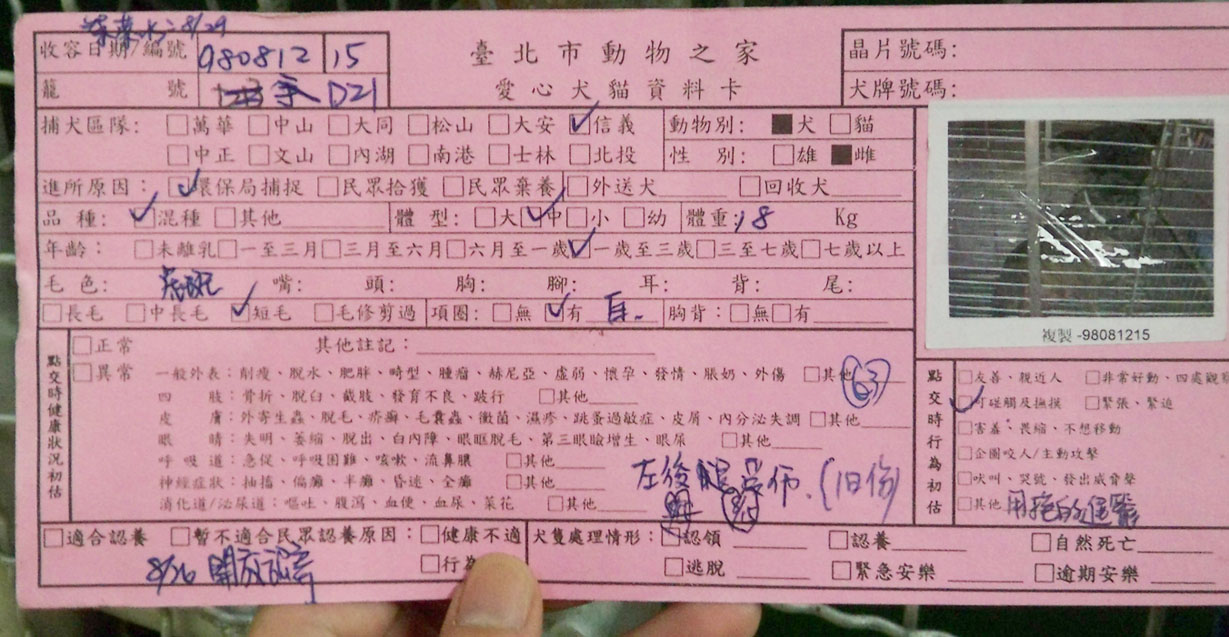 8/29
收容日期/編號 980812 15
臺北市動物之家
晶片號碼:
籠號 D21
愛心犬貓資料卡
犬牌號碼:
捕犬區隊: □萬華 □中山 □大同 □松山 □大安 ☑信義
動物別: ■犬 □貓
□中正 □文山 □內湖 □南港 □士林 □北投
性別: □雄 ■雌
進所原因: ☑環保局捕捉 □民眾拾獲 □民眾棄養 □外送犬 □回收犬
品種: ☑混種 □其他 體型: □大 ☑中 □小 □幼 體重: 18 Kg
年齡: □未離乳 □一至三月 □三月至六月 □六月至一歲 ☑一歲至三歲 □三至七歲 □七歲以上
毛色: 虎斑 嘴: 頭: 胸: 腳: 耳: 背: 尾:
□長毛 □中長毛 ☑短毛 □毛修剪過 項圈: □無 ☑有 胸背: □無 □有
複製 -98081215
點交時健康狀況初估
□正常 其他註記:
□異常 一般外表: 削瘦、脫水、肥胖、畸型、腫瘤、赫尼亞、虛弱、懷孕、發情、脹奶、外傷 □其他 63
四肢: 骨折、脫臼、截肢、發育不良、跛行 □其他
皮膚: 外寄生蟲、脫毛、疥癬、毛囊蟲、黴菌、濕疹、跳蚤過敏症、皮屑、內分泌失調 □其他
眼睛: 失明、萎縮、脫出、白內障、眼眶脫毛、第三眼瞼增生、眼屎 □其他
呼吸道: 急促、呼吸困難、咳嗽、流鼻膿 □其他
神經症狀: 抽搐、偏癱、半癱、昏迷、全癱 □其他
消化道/泌尿道: 嘔吐、腹瀉、血便、血尿、菜花 □其他
左後腿 (旧傷)
點交時行為初估
□友善、親近人 □非常好動、四處觀
☑可碰觸及撫摸 □緊張、緊迫
□害羞、畏縮、不想移動
□企圖咬人/主動攻擊
□吠叫、哭號、發出威脅聲
□其他 用拖的進籠
□適合認養 □暫不適合民眾認養原因: □健康不適
□行為
8/26 開放認養
犬隻處理情形: □認領 □認養 □自然死亡
□逃脫 □緊急安樂 □逾期安樂